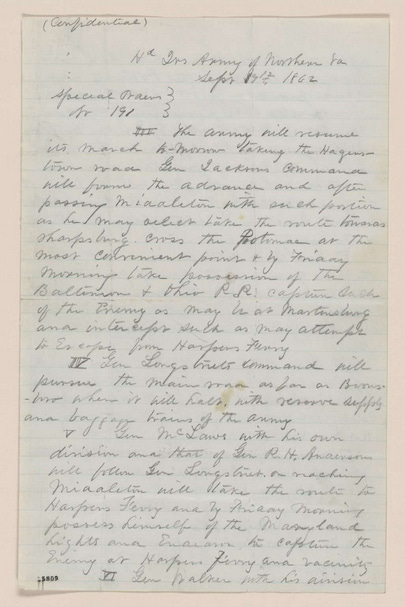 (Confidential)
Hd Qrs Army of Northern Va
Sept 9th 1862
Special Orders }
No 191 }
III The Army will resume
its march to-morrow taking the Hagers-
town road Gen Jacksons Command
will form the advance and after
passing Middleton with such portion
as he may select take the route towards
Sharpsburg cross the Potomac at the
most convenient point & by Friday
Morning take possession of the
Baltimore & Ohio R.R. capture such
of the Enemy as may be at Martinsburg
and intercept such as may attempt
to Escape from Harpers Ferry
IV Gen Longstreets command will
pursue the main road as far as Boons-
-boro where it will halt, with reserve supply
and baggage trains of the army
V Gen McLaws with his own
division and that of Gen R. H. Anderson
will follow Gen Longstreet. on reaching
Middleton will take the route to
Harpers Ferry and by Friday Morning
possess himself of the Maryland
hights and Endeavor to capture the
Enemy at Harpers Ferry and vacinity
VI Gen Walker with his division
5809